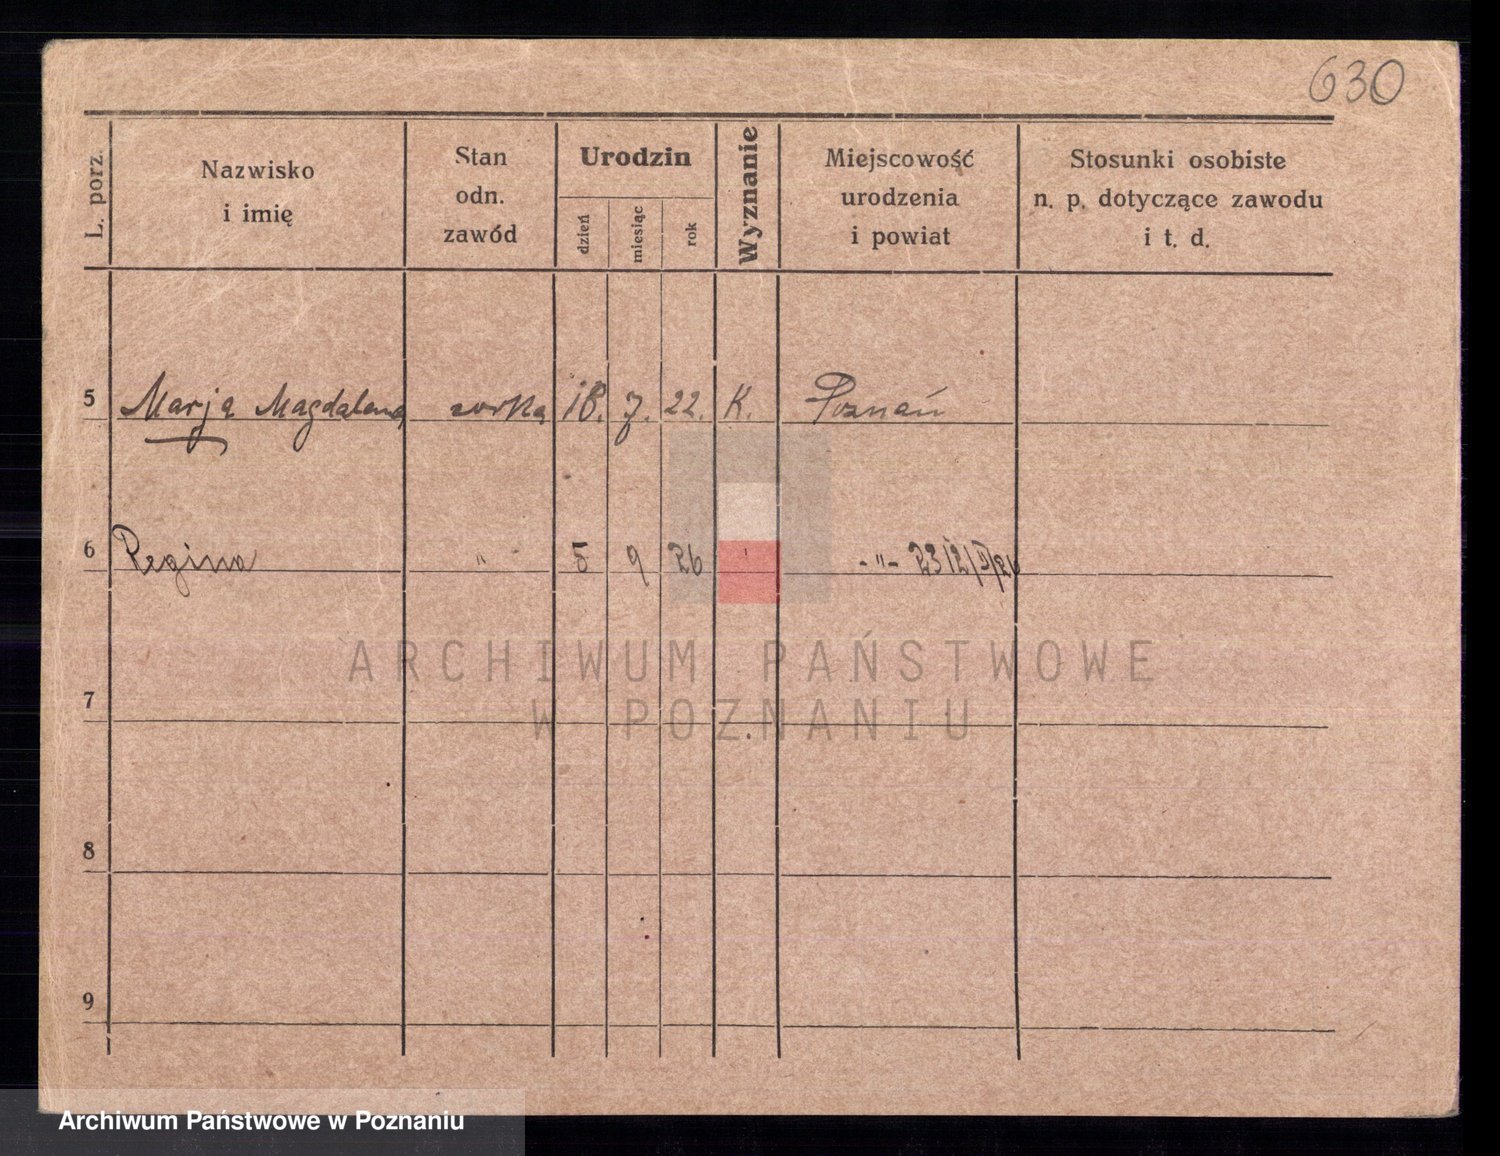 630
L. porz.
Nazwisko
i imię
Stan
odn.
zawód
Urodzin
dzień
miesiąc
rok
Wyznanie
Miejscowość
urodzenia
i powiat
Stosunki osobiste
n. p. dotyczące zawodu
i t. d.
5 Marja Magdalena corka 18. 7. 22. K. Poznań
6 Regina " 5 9 26 ' -"-
7
8
9
ARCHIWUM PAŃSTWOWE
W POZNANIU
Archiwum Państwowe w Poznaniu